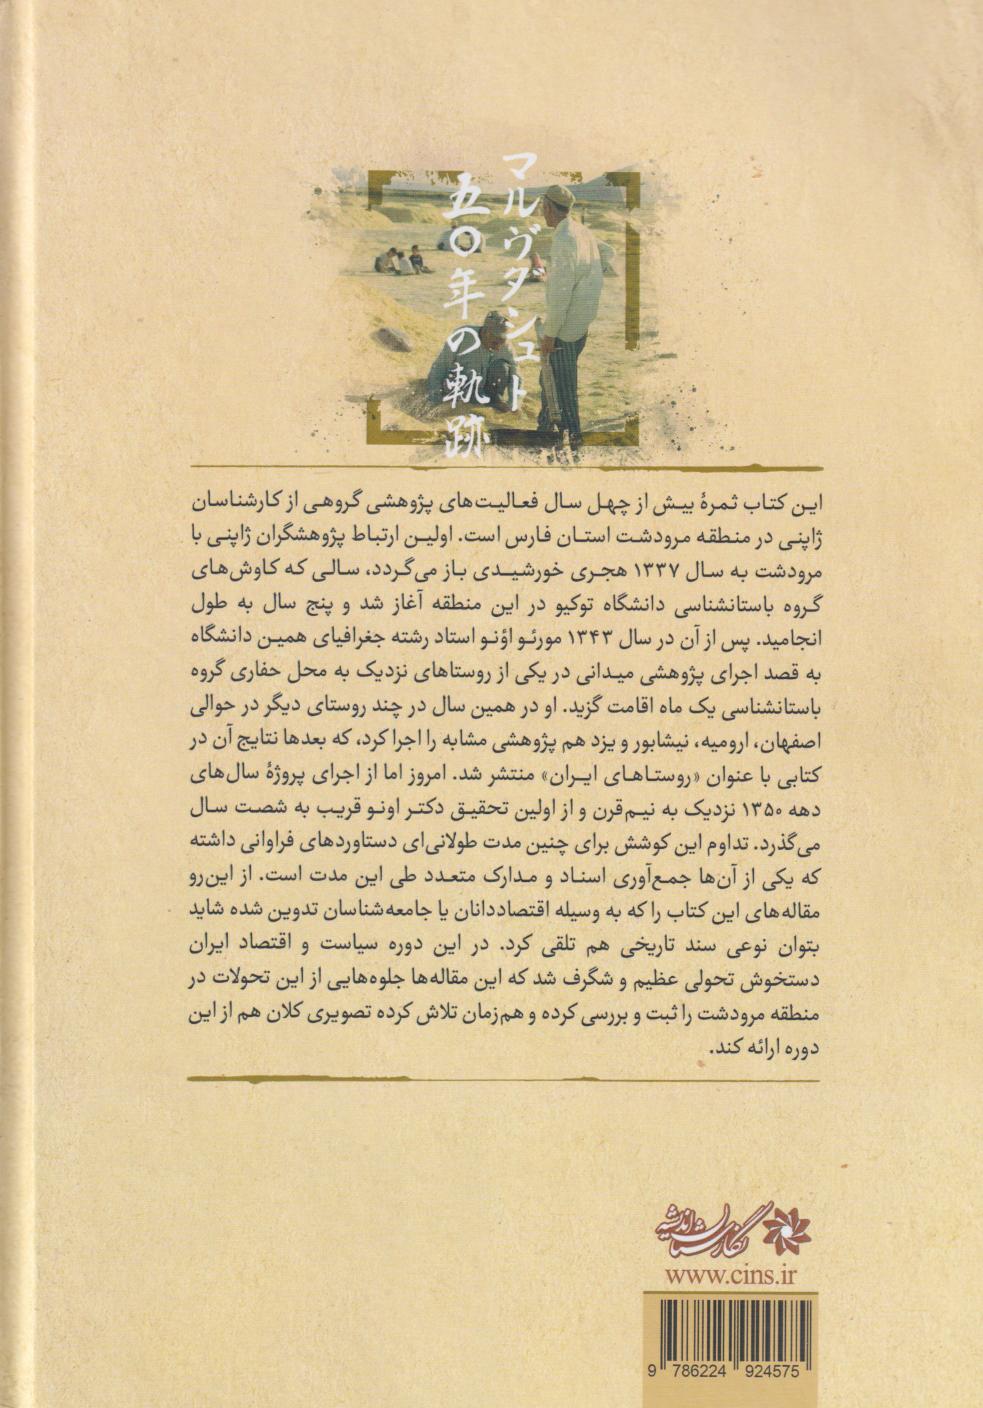 マルヴダシュト
五〇年の軌跡
این کتاب ثمرهٔ بیش از چهل سال فعالیت‌های پژوهشی گروهی از کارشناسان
ژاپنی در منطقه مرودشت استان فارس است. اولین ارتباط پژوهشگران ژاپنی با
مرودشت به سال ۱۳۳۷ هجری خورشیدی باز می‌گردد، سالی که کاوش‌های
گروه باستانشناسی دانشگاه توکیو در این منطقه آغاز شد و پنج سال به طول
انجامید. پس از آن در سال ۱۳۴۳ مورئو اؤنو استاد رشته جغرافیای همین دانشگاه
به قصد اجرای پژوهشی میدانی در یکی از روستاهای نزدیک به محل حفاری گروه
باستانشناسی یک ماه اقامت گزید. او در همین سال در چند روستای دیگر در حوالی
اصفهان، ارومیه، نیشابور و یزد هم پژوهشی مشابه را اجرا کرد، که بعدها نتایج آن در
کتابی با عنوان «روستاهای ایران» منتشر شد. امروز اما از اجرای پروژهٔ سال‌های
دهه ۱۳۵۰ نزدیک به نیم‌قرن و از اولین تحقیق دکتر اونو قریب به شصت سال
می‌گذرد. تداوم این کوشش برای چنین مدت طولانی‌ای دستاوردهای فراوانی داشته
که یکی از آن‌ها جمع‌آوری اسناد و مدارک متعدد طی این مدت است. از این‌رو
مقاله‌های این کتاب را که به وسیله اقتصاددانان یا جامعه‌شناسان تدوین شده شاید
بتوان نوعی سند تاریخی هم تلقی کرد. در این دوره سیاست و اقتصاد ایران
دستخوش تحولی عظیم و شگرف شد که این مقاله‌ها جلوه‌هایی از این تحولات در
منطقه مرودشت را ثبت و بررسی کرده و هم‌زمان تلاش کرده تصویری کلان هم از این
دوره ارائه کند.
نگارستان اندیشه
www.cins.ir
9 786224 924575